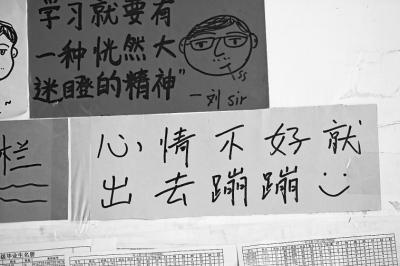 学习就要有
一种恍然大
迷瞪的精神"
—刘sir
栏
心情不好就
出去蹦蹦
毕业生名册